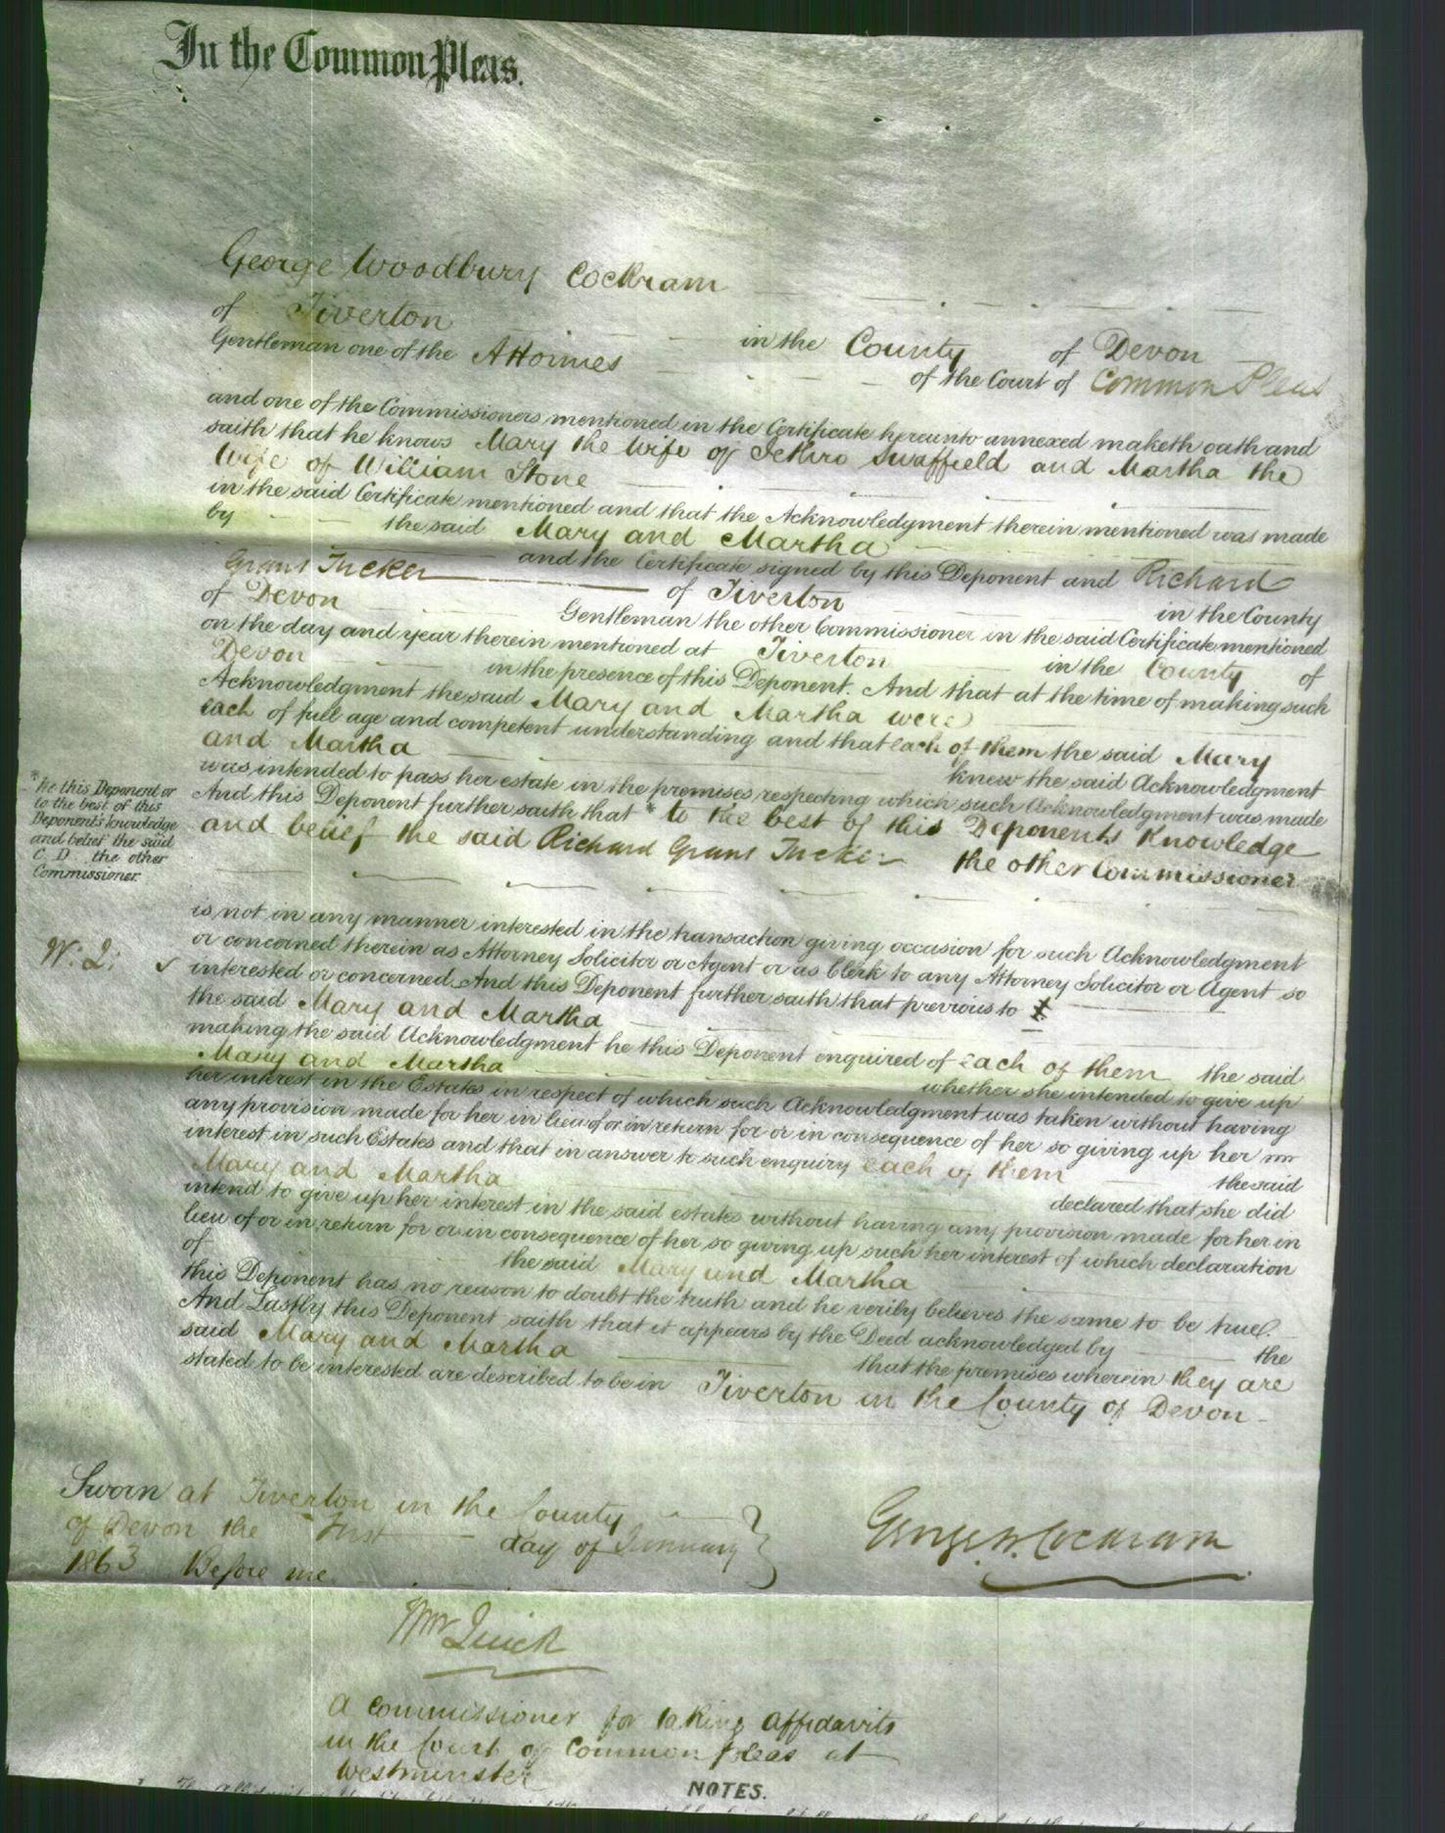 In the Common Pleas.
George Woodbury Cockram
of Tiverton in the County of Devon
Gentleman one of the Attornies of the Court of Common Pleas
and one of the Commissioners mentioned in the Certificate hereunto annexed maketh oath and
saith that he knows Mary the wife of Jethro Swaffield and Martha the
Wife of William Stone
in the said Certificate mentioned and that the Acknowledgment therein mentioned was made
by the said Mary and Martha
and the Certificate signed by this Deponent and Richard
Grant Tucker of Tiverton in the County
of Devon Gentleman the other Commissioner in the said Certificate mentioned
on the day and year therein mentioned at Tiverton in the County of
Devon in the presence of this Deponent. And that at the time of making such
Acknowledgment the said Mary and Martha were
each of full age and competent understanding and that each of them the said Mary
and Martha knew the said Acknowledgment
was intended to pass her estate in the premises respecting which such Acknowledgment was made
And this Deponent further saith that * to the best of this Deponents Knowledge
and belief the said Richard Grant Tucker the other Commissioner
* he this Deponent or
to the best of this
Deponent's knowledge
and belief the said
C. D. the other
Commissioner.
is not in any manner interested in the transaction giving occasion for such Acknowledgment
or concerned therein as Attorney Solicitor or Agent or as Clerk to any Attorney Solicitor or Agent so
W: Q: interested or concerned. And this Deponent further saith that previous to
the said Mary and Martha
making the said Acknowledgment he this Deponent enquired of each of them the said
Mary and Martha whether she intended to give up
her interest in the Estates in respect of which such Acknowledgment was taken without having
any provision made for her in lieu of or in return for or in consequence of her so giving up her
interest in such Estates and that in answer to such enquiry each of them the said
Mary and Martha declared that she did
intend to give up her interest in the said estates without having any provision made for her in
lieu of or in return for or in consequence of her so giving up such her interest of which declaration
of the said Mary and Martha
this Deponent has no reason to doubt the truth and he verily believes the same to be true.
And Lastly this Deponent saith that it appears by the Deed acknowledged by the
said Mary and Martha that the premises wherein they are
stated to be interested are described to be in Tiverton in the County of Devon
Sworn at Tiverton in the County
of Devon the First day of January
1863 Before me
George W. Cockram
Wm Quick
A Commissioner for taking Affidavits
in the Court of Common Pleas at
Westminster
NOTES.